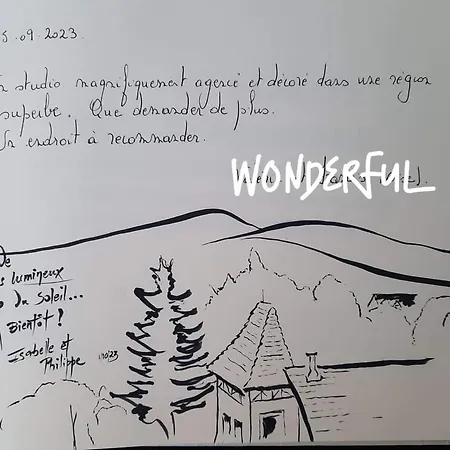 5.09.2023.
studio magnifiquement agencé et décoré dans une région
superbe. Que demander de plus.
Un endroit à recommander.
WONDERFUL
De
lumineux
du soleil...
Bientôt !
Isabelle et
Philippe